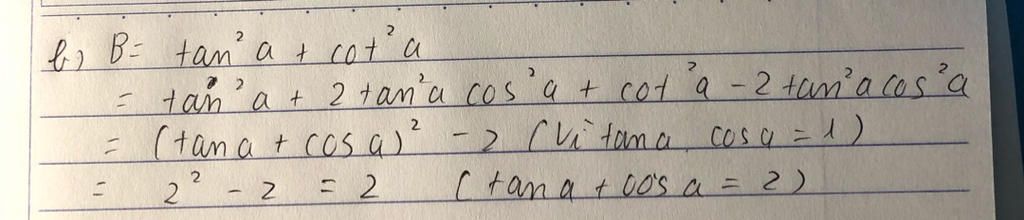 b) B = tan²a + cot²a
= tan²a + 2tan²a cos²a + cot²a - 2tan²a cos²a
= (tan a + cos a)² - 2 (Vì tan a. cos a = 1)
= 2² - 2 = 2 (tan a + cos a = 2)